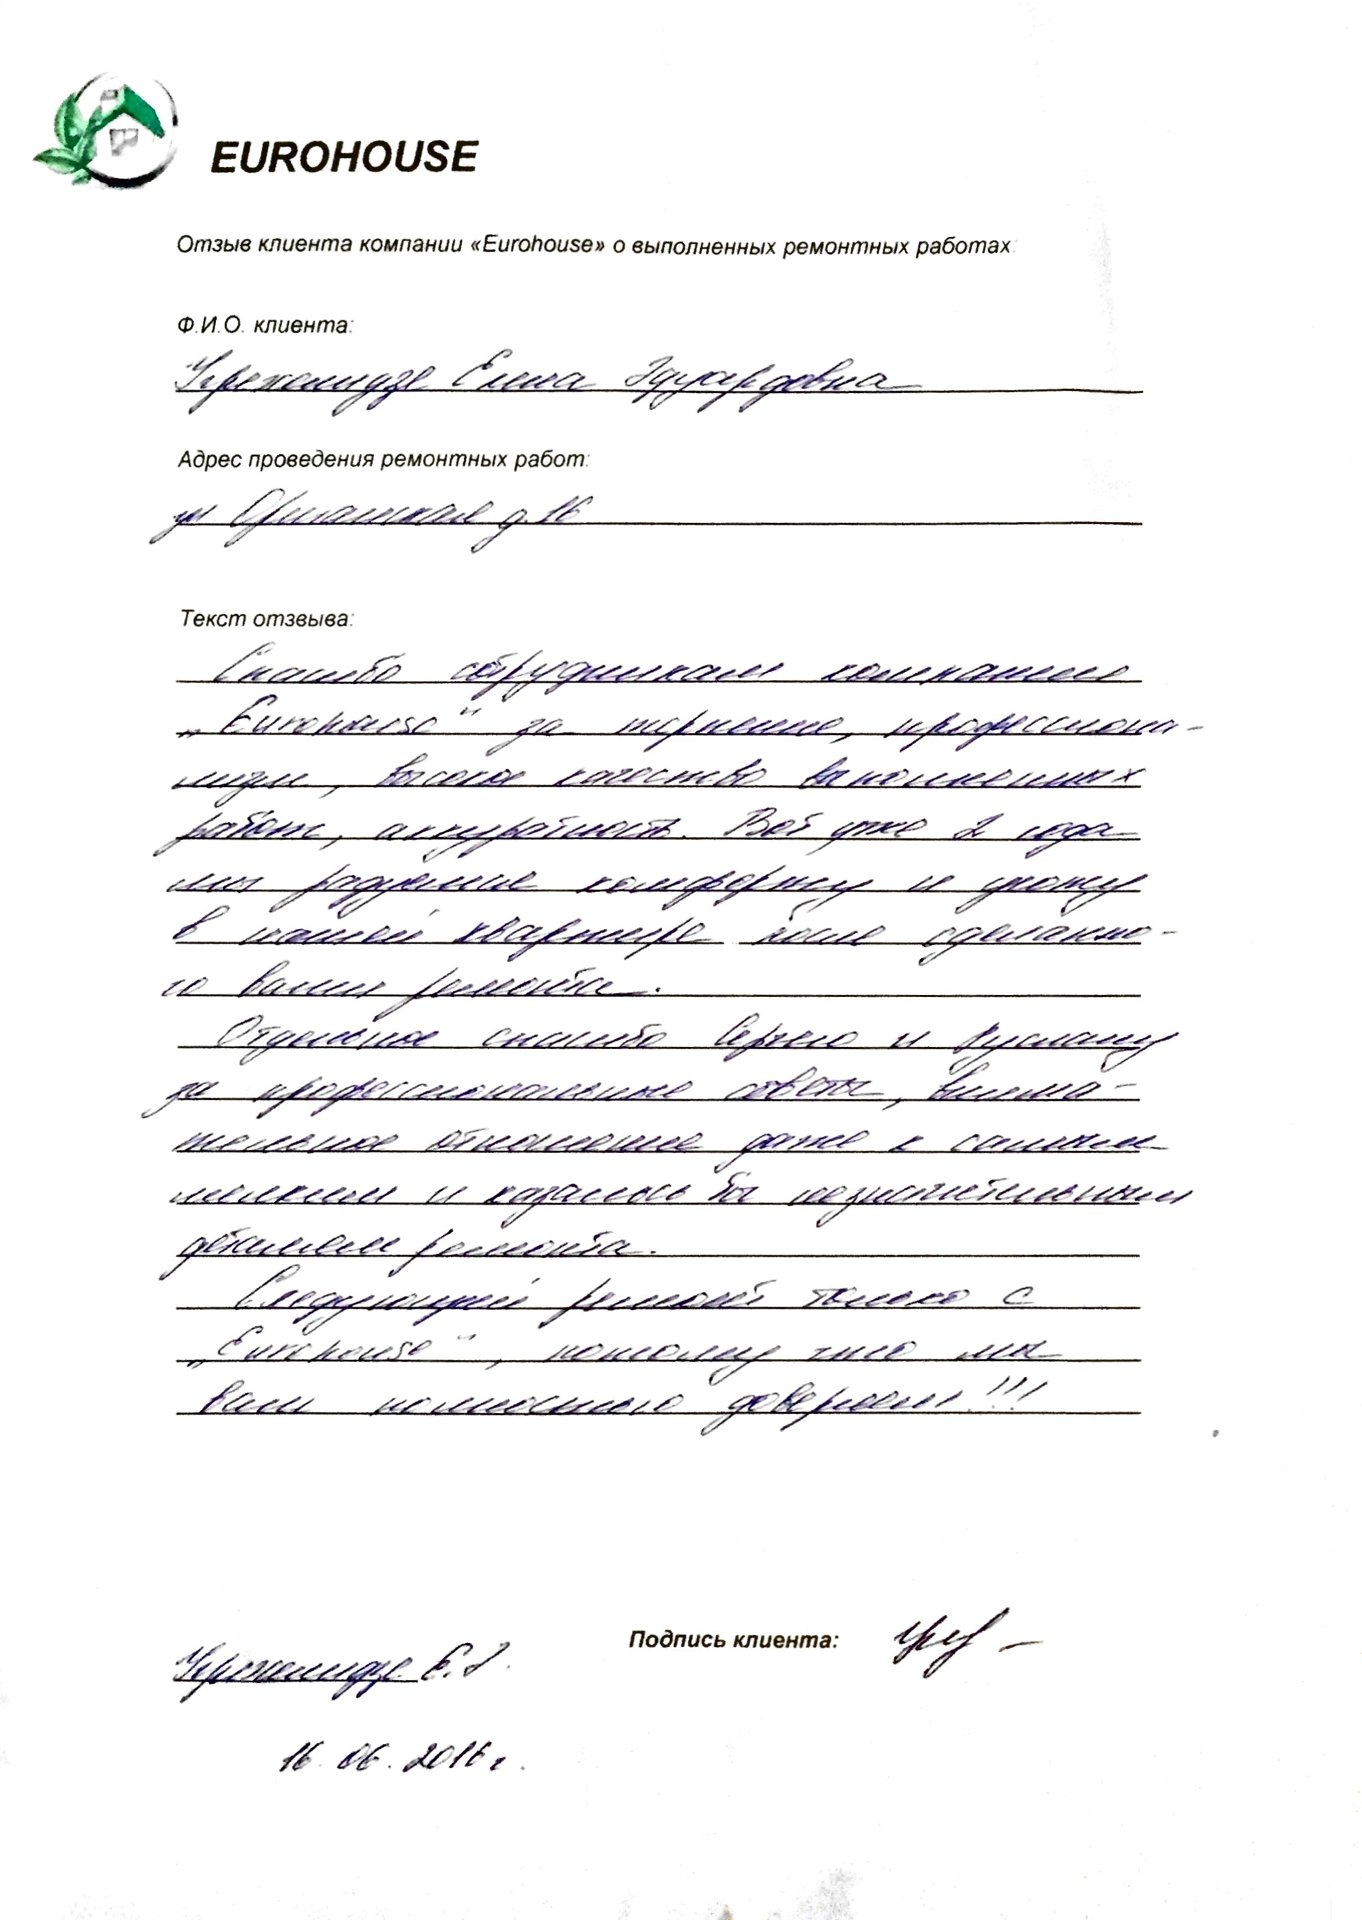 EUROHOUSE
Отзыв клиента компании «Eurohouse» о выполненных ремонтных работах:
Ф.И.О. клиента:
Елена Эдуардовна
Адрес проведения ремонтных работ:
ул д.16
Текст отзвыва:
Спасибо сотрудникам компании
„Eurohouse" за терпение, профессиона-
лизм, высокое качество выполненных
работ, аккуратность. Вот уже 2 года
мы радуемся комфорту и уюту
в нашей квартире после сделанно-
го вами ремонта.
Отдельное спасибо Сергею и Руслану
за профессиональные советы, внима-
тельное отношение даже к самым
мелким и казалось бы незначительным
деталям ремонта.
Следующий ремонт только с
„Eurohouse", потому что мы
вам полностью доверяем!!!
Подпись клиента:
Е.Э.
16.06.2016г.